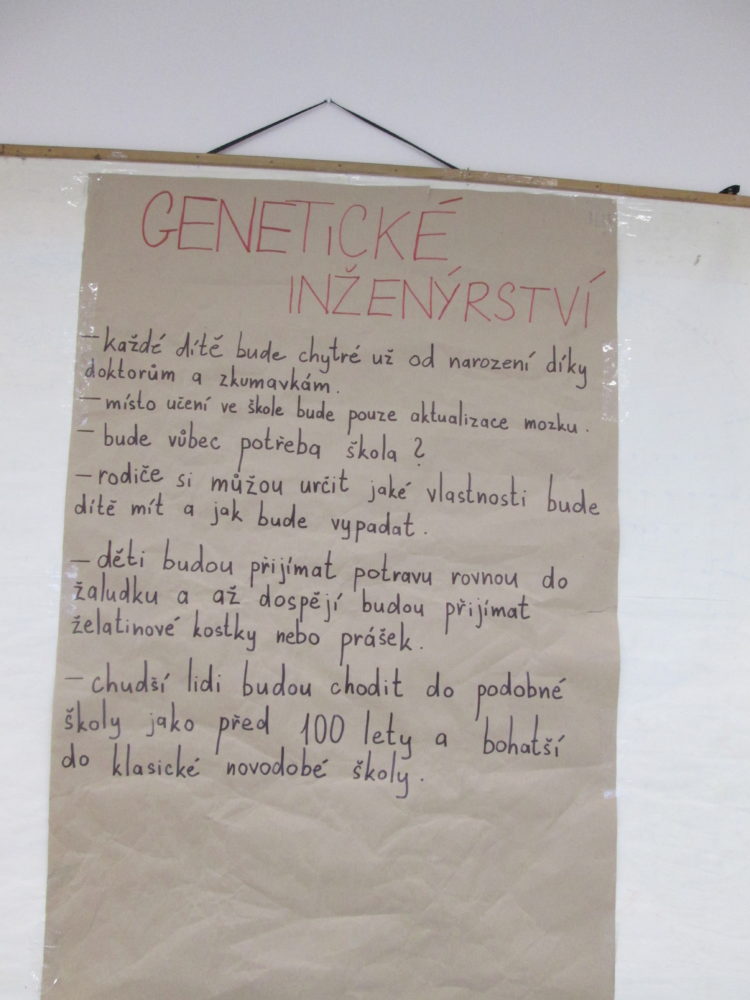 GENETICKÉ
INŽENÝRSTVÍ
– každé dítě bude chytré už od narození díky
doktorům a zkumavkám.
– místo učení ve škole bude pouze aktualizace mozku.
– bude vůbec potřeba škola?
– rodiče si můžou určit jaké vlastnosti bude
dítě mít a jak bude vypadat.
– děti budou přijímat potravu rovnou do
žaludku a až dospějí budou přijímat
želatinové kostky nebo prášek.
– chudší lidi budou chodit do podobné
školy jako před 100 lety a bohatší
do klasické novodobé školy.